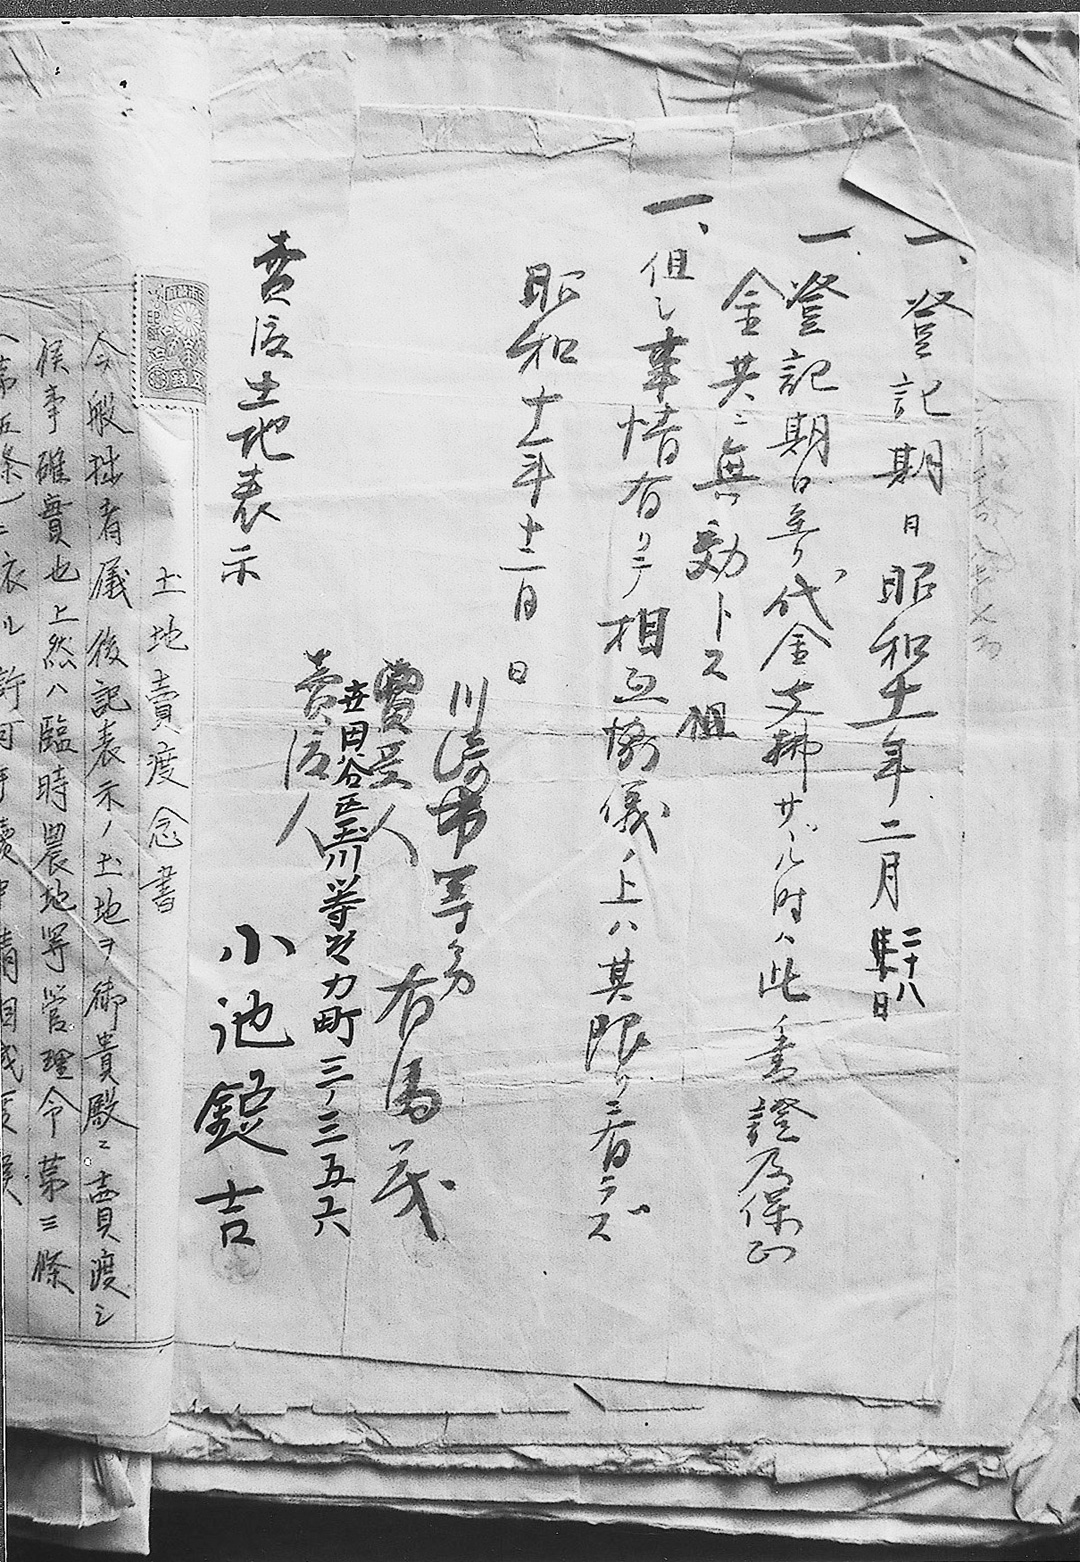 一、登記期日昭和十二年二月二十八日
一、登記期日至リ代金支拂サル時ハ此ノ書證及保
金共ニ無効トス但
一、但シ事情有リテ相互協儀ノ上ハ其限リニ有ラズ
昭和十一年十二月 日
川崎市等々力
買受人 有馬茂
世田谷区玉川等々力町三ノ三五六
賣渡人
小池錠吉
賣渡土地表示
土地賣渡念書
今般拙者儀後記表示ノ土地ヲ御貴殿ニ賣渡シ
候事確實也上然ハ臨時農地等管理令第三條
第五條ノニ依ル許可手續申請目